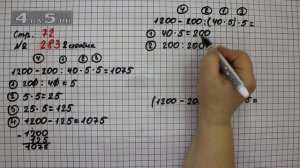 4 A 5 . RU
Стр. 72
№ 283 2 столбик
④ ① ③ ②
1200 - 200 : 40 · 5 · 5 = 1075
① 200 : 40 = 5
② 5 · 5 = 25
③ 25 · 5 = 125
④ 1200 - 125 = 1075
- 1200
125
1075
④ ② ① ③
1200 - 200 : (40 · 5) · 5 =
① 40 · 5 = 200
② 200 : 200
(1200 - 200
· 5 =